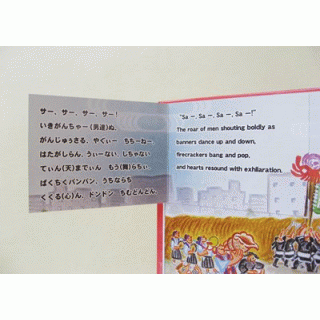 サー、サー、サー、サー！
いきがんちゃー(男達)ぬ、
がんじゅうさる、やぐぃー ちちーねー、
はたがしらん、うぃーない しちゃない
てぃん(天)までぃん、もう(舞)らちぃ、
ばくちくバンバン、うちならち
くくる(心)ん、ドンドン ちむどんどん。
"Sa –, Sa –, Sa –, Sa –!"
The roar of men shouting boldly as
banners dance up and down,
firecrackers bang and pop,
and hearts resound with exhilaration.